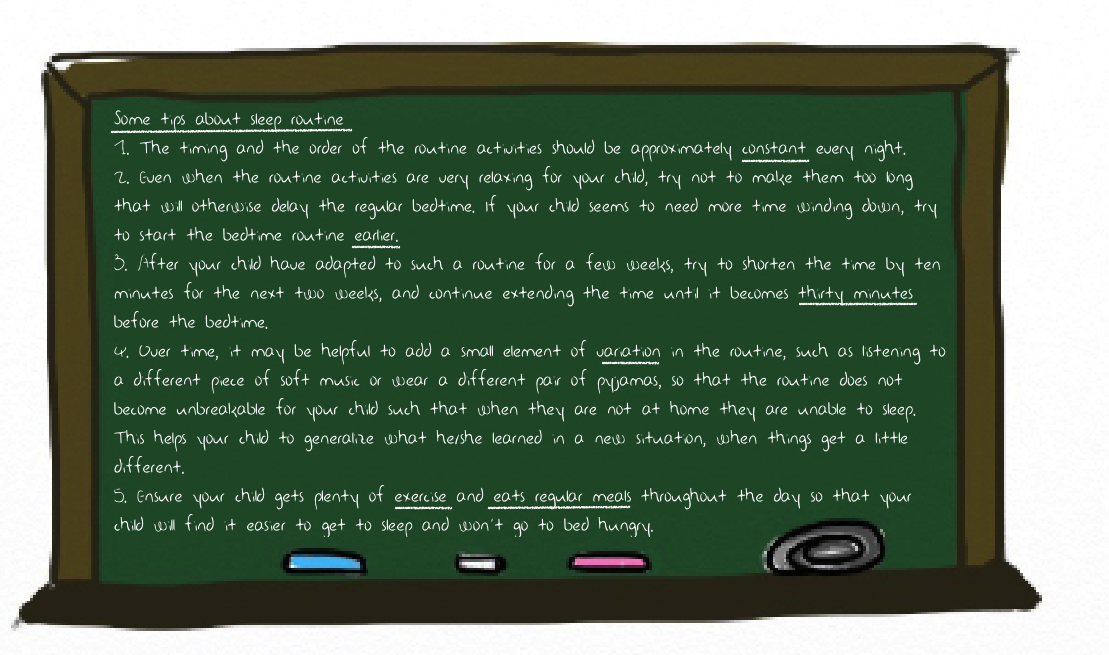 Some tips about sleep routine
1. The timing and the order of the routine activities should be approximately constant every night.
2. Even when the routine activities are very relaxing for your child, try not to make them too long
that will otherwise delay the regular bedtime. If your child seems to need more time winding down, try
to start the bedtime routine earlier.
3. After your child have adapted to such a routine for a few weeks, try to shorten the time by ten
minutes for the next two weeks, and continue extending the time until it becomes thirty minutes
before the bedtime.
4. Over time, it may be helpful to add a small element of variation in the routine, such as listening to
a different piece of soft music or wear a different pair of pyjamas, so that the routine does not
become unbreakable for your child such that when they are not at home they are unable to sleep.
This helps your child to generalize what he/she learned in a new situation, when things get a little
different.
5. Ensure your child gets plenty of exercise and eats regular meals throughout the day so that your
child will find it easier to get to sleep and won't go to bed hungry.